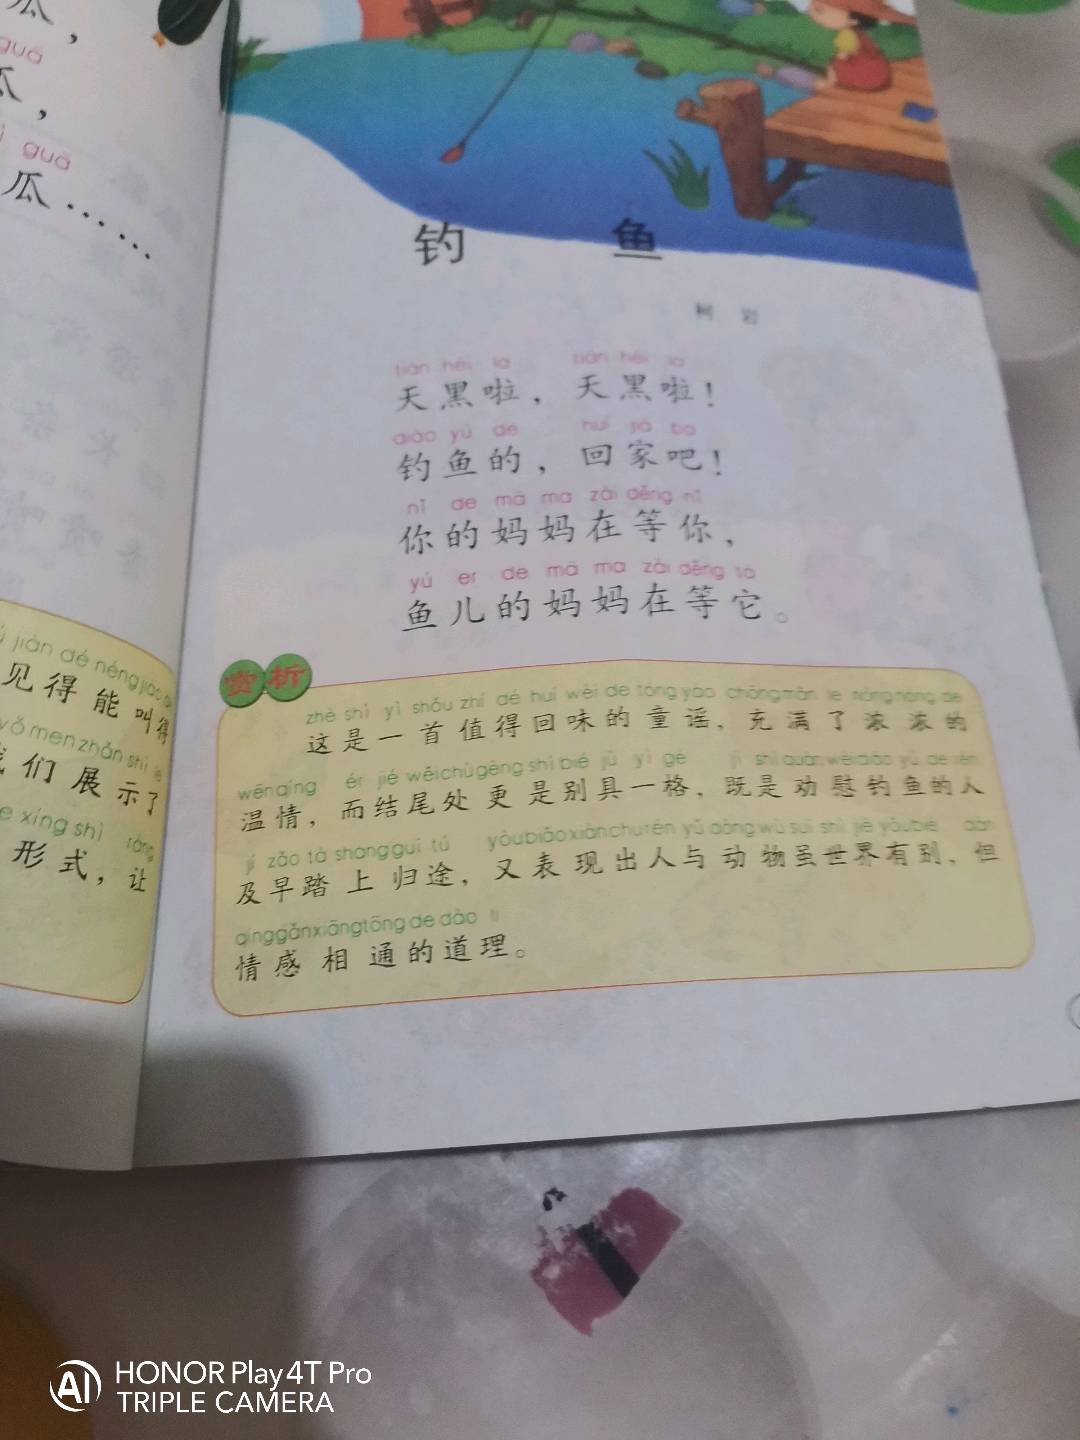 瓜，
guā
瓜，
guā
瓜……
jiàn dé néng jiào
见得能叫得
men zhǎn shì le
们展示了
xíng shì ràng
形式，让
钓 鱼
柯 岩
tiān hēi la tiān hēi la
天黑啦，天黑啦！
diào yú de huí jiā ba
钓鱼的，回家吧！
nǐ de mā ma zài děng nǐ
你的妈妈在等你，
yú er de mā ma zài děng tā
鱼儿的妈妈在等它。
赏析
zhè shì yì shǒu zhí dé huí wèi de tóng yáo chōng mǎn le nóng nóng de
这是一首值得回味的童谣，充满了浓浓的
wēn qíng ér jié wěi chù gèng shì bié jù yì gé jì shì quàn wèi diào yú de rén
温情，而结尾处更是别具一格，既是动慰钓鱼的人
jí zǎo tà shàng guī tú yòu biǎo xiàn chū rén yǔ dòng wù suī shì jiè yǒu bié dàn
及早踏上归途，又表现出人与动物虽世界有别，但
qíng gǎn xiāng tōng de dào lǐ
情感相通的道理。
HONOR Play4T Pro
TRIPLE CAMERA